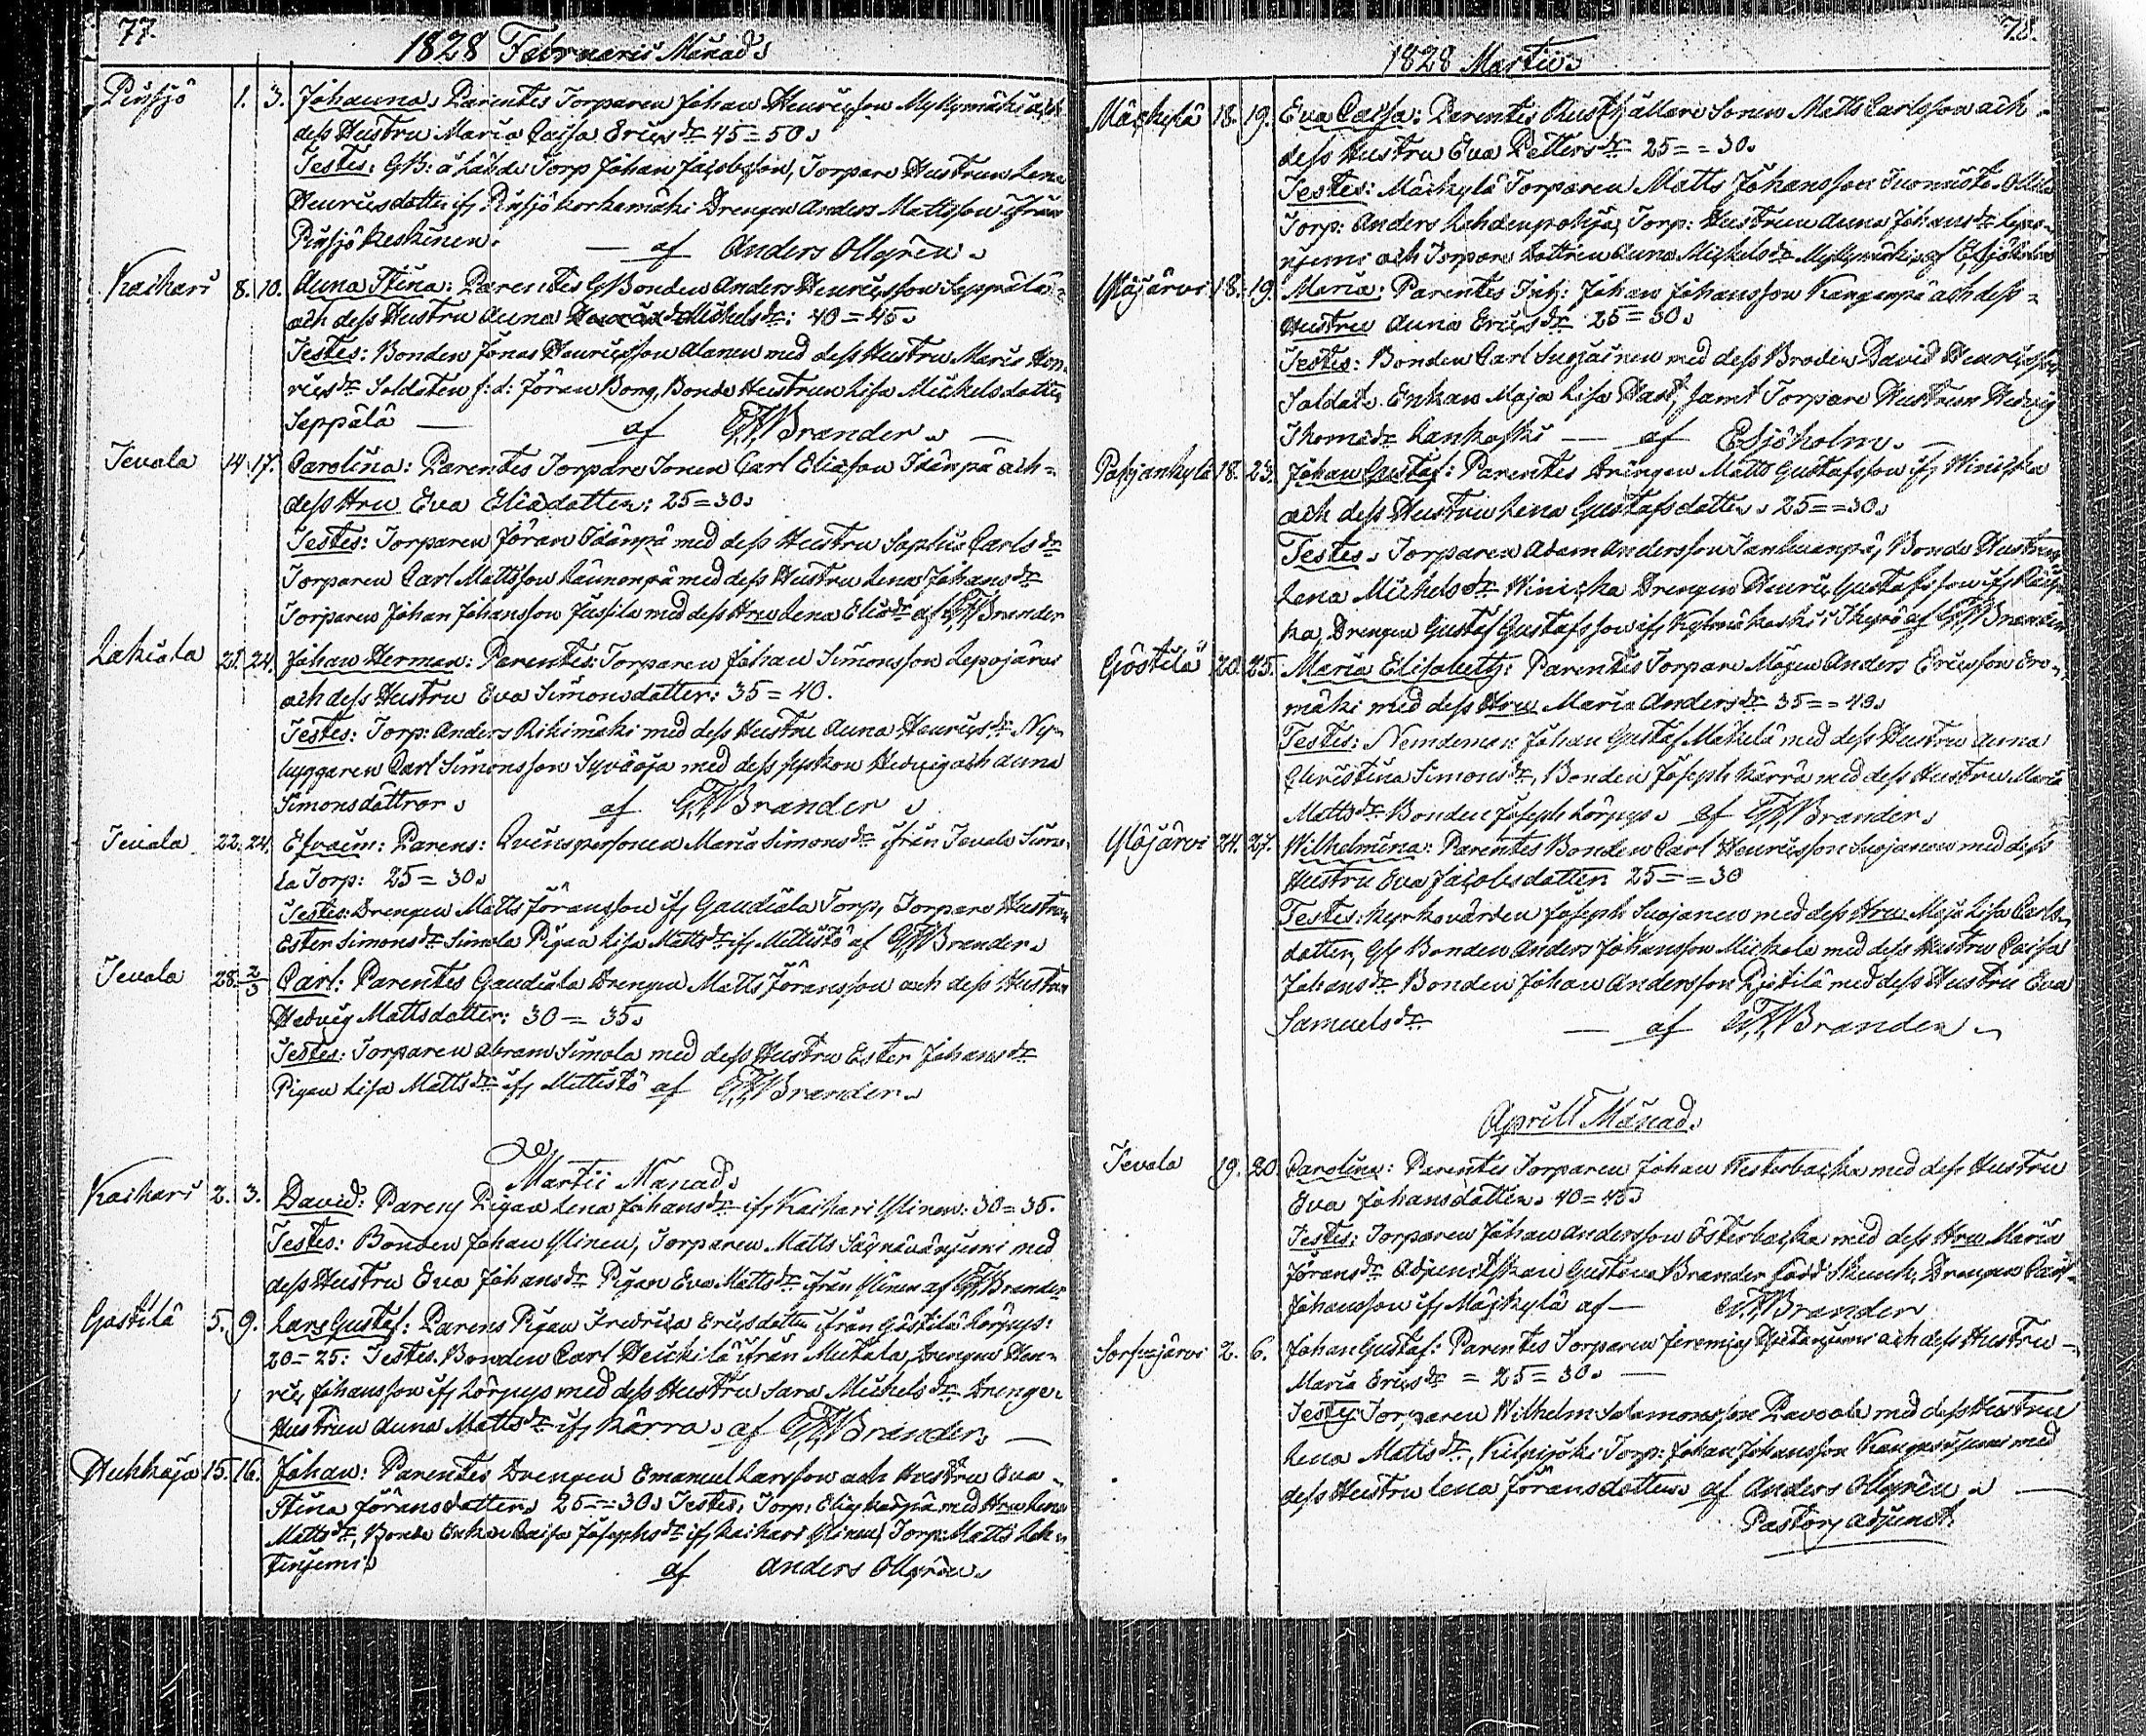 77.
1828 Februarii Månad.
Pinsjö 1. 3. Johanna: Parentes Torparen Johan Henricsson Myllymäki och
dess Hustru Maria Caisa Ericsdr 45=50.
Testes: GB: å Lahde Torp Johan Jacobsson, Torpare Hustrun Lena
Henricsdotter ifr Pinsjö Korkemäki Drengen Anders Mattsson ifrån
Pinsjö Keskinen. — af Anders Ollgrén.
Kaihari 8. 10. Anna Stina: Parentes GBonden Anders Henricsson Seppälä
och dess Hustru Anna Michelsdr: 40=45.
Testes: Bonden Jonas Henricsson Alanen med dess Hustru Maria Hen-
ricsdr Soldaten f:d: Jöran Borg, Bonde Hustrun Lisa Michelsdotter
Seppälä — af GFBrander. —
Tevala 14. 17. Carolina: Parentes Torpare Sonen Carl Eliasson Idänpä och
dess Hru Eva Eliædotter: 25=30.
Testes: Torparen Jöran Idänpä med dess Hustru Sophia Carlsdr
Torparen Carl Mattsson Launonpä med dess Hustru Lena Johansdr
Torparen Johan Johansson Jussila med dess Hru Lena Eliædr af GFBrander
Lakiala 21. 24. Johan Herman: Parentes: Torparen Johan Simonsson Lepojärvi
och dess Hustru Eva Simonsdotter: 35=40.
Testes: Torp: Anders Rikimäki med dess Hustru Anna Henricsdr Ny-
byggaren Carl Simonsson Syväoja med dess syskon Hedvig och Anna
Simonsdöttror. af GFBrander.
Tevala 22. 24. Efraim: Parens: Qvinspersonen Maria Simonsdr ifrån Tevala Simo-
la Torp: 25=30.
Testes: Drengen Matts Jöransson ifr Gaudiala Torp, Torpare Hustrun
Ester Simonsdr Simola Pigan Lisa Mattsdr ifr Mettistö af GFBrander.
Tevala 28. 2/3 Carl: Parentes Gaudiala Drengen Matts Jöransson och dess Hustru
Hedvig Mattsdotter: 30=35.
Testes: Torparen Abram Simola med dess Hustru Ester Johansdr
Pigan Lisa Mattsdr ifr Mettistö af GFBrander.
Martii Månad.
Kaihari 2. 3. David: Parens Pigan Lena Johansdr ifr Kaihari Ylinen: 30=35.
Testes: Bonden Johan Ylinen, Torparen Matts Säynävänjemi med
dess Hustru Eva Johansdr Pigan Eva Mattsdr ifrån Ylinen af GFBrander
Göstilä 5. 9. Lars Gustaf: Parens Pigan Fredrica Ericsdotter ifrån Göstilä Körpys:
20=25: Testes. Bonden Carl Heickilä ifrån Mutala, Drengen Hen-
ric Johansson ifr Körpys med dess Hustru Sara Michelsdr Drenge
Hustrun Anna Mattsdr ifr Kärra. af GFBrander. —
Huhkaja 15. 16. Johan: Parentes Drengen Emanuel Larsson och Hustru Eva
Stina Jöransdotter. 25==30. Testes: Torp: Elias Karpä med Hru Lena
Mattsdr, Bonde Enkan Caisa Josephsdr ifr Kaihari Ylinen, Torp: Matts Leh-
tinjemi. af Anders Ollgrén.
78.
1828 Martii.
Mäckylä 18. 19. Eva Caisa: Parentes Rusthållare Sonen Matts Carlsson och
dess Hustru Eva Pettersdr 25==30.
Testes: Mäckylä Torparen Matts Johansson Tuomisto Ollila
Torp: Anders Lehdenpohja, Torp: Hustrun Anna Johansdr
njemi och Torpare Dottren Anna Michelsdr Myllymäki af ESjöholm
Ylöjärvi 18. 19. Maria: Parentes Inh: Johan Johansson Kangenpä och dess
Hustru Anna Ericsdr 25=30.
Testes: Bonden Carl Suojainen med dess Broder David Henricsson
Soldats Enkan Maja Lisa Hast, samt Torpare Hustrun Hedvig
Thomædr Lankoski — af ESjöholm. —
Pohjankylä 18. 23. Johan Gustaf: Parentes Drängen Matts Gustafsson ifr Winicka
och dess Hustru Lena Gustafsdotter. 25==30.
Testes. Torparen Adam Andersson Janhuanpä, Bonde Hustrun
Lena Michelsdr Winicka Drengen Henric Gustafsson ifr
ka, Drengen Gustaf Gustafsson ifr Kylmäkoski i Ikyrö af GFBrander
Göstilä 20. 25. Maria Elisabeth: Parentes Torpare Mågen Anders Ericsson Ero-
mäki med dess Hru Maria Andersdr 35==40.
Testes: Nemdeman Johan Gustaf Mäkelä med dess Hustru Anna
Christina Simonsdr, Bonden Joseph Kärrä med dess Hustru Maria
Mattsdr Bonden Joseph Körpys. af GFBrander.
Ylöjärvi 24. 27. Wilhelmina: Parentes Bonden Carl Henricsson Suojanen med dess
Hustru Eva Jacobsdotter 25==30
Testes: Kyrkovärden Joseph Suojanen med dess Hru Maja Lisa Carls-
dotter, Gl Bonden Anders Johansson Mickola med dess Hustru Caisa
Johansdr Bonden Johan Andersson Pietilä med dess Hustru Eva
Samuelsdr — af GFBrander.
Aprill Månad.
Tevala 19. 20. Carolina: Parentes Torparen Johan Westerbacka med dess Hustru
Eva Johansdotter. 40=45.
Testes: Torparen Johan Andersson Österbacka med dess Hru Maria
Jöransdr Adjunctskan Gustava Brander född Skunck, Drengen Carl
Johansson ifr Mäckylä af — GFBrander
Sorsajärvi 2. 6. Johan Gustaf: Parentes Torparen Jeremias och dess Hustru
Maria Ericsdr = 25=30. —
Testes: Torparen Wilhelm Salomonsson Pavola med dess Hustru
Lena Mattsdr, Kulpijöki Torp: Johan Johansson Kangasnjemi med
dess Hustru Lena Jöransdotter. af Anders Ollgrén. —
Pastors Adjunct.